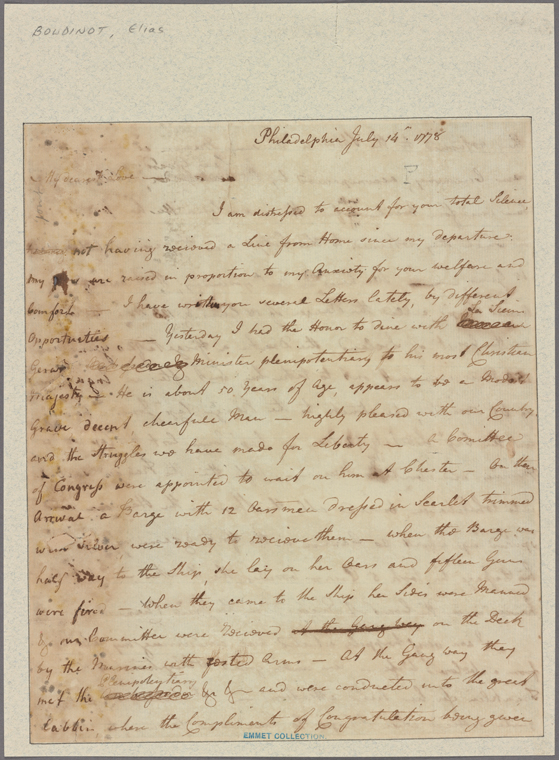 BOUDINOT, Elias
Philadelphia July 14th. 1778
My dearest Love —
I am distressed to account for your total Silence
not having recieved a Line from Home since my departure.
My are raised in proportion to my Anxiety for your welfare and
Comfort — I have written you several Letters lately, by different
Opportunities — Yesterday I had the Honor to dine with Le Sieur
Gerard Minister plenipotentiary to his most Christian
Majesty — He is about 50 Years of Age, appears to be a Modest
Grave decent cheerfull Man — highly pleased with our Country,
and the Struggles we have made for Liberty — a Committee
of Congress were appointed to wait on him at Chester — On their
Arrival a Barge with 12 Oarsmen dressed in Scarlet trimmed
with Silver were ready to recieve them — when the Barge was
half way to the Ship, she lay on her Oars and fifteen Guns
were fired — When they came to the Ship her Sides were Manned
& our Committee were Recieved at the Gang way on the Deck
by the Marines with rested Arms — At the Gang way they
met the Plenipotentiary &c &c and were conducted into the great
Cabbin where the Compliments of Congratulation being given
EMMET COLLECTION